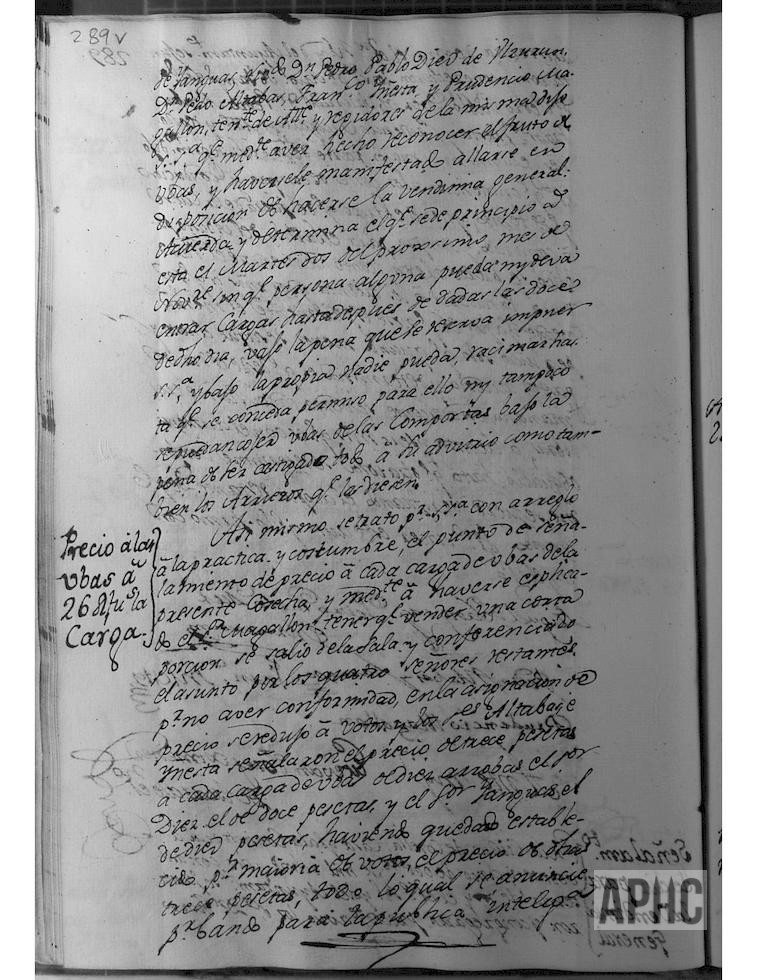 289v
de Yanguas, el s.r D.n Pedro Pablo Diez de Ulzurrun,
D.n Pedro Altabas, Fran.co Yñesta y Prudencio Ma-
gallon, ten.te de Alc.e y regidores de la misma dijo
S. S.a q.e med.te aver hecho reconocer el fruto de
vbas, y haversele manifestado allarse en
disposicion de hacerse la vendimia general:
Acuerda y determina el q.e se de principio a
esta el Martes dos del proxsimo mes de
Nov.re sin q.e persona alguna pueda ny deva
entrar Cargas hasta despues de dadas las doce
de dho dia, vajo la pena que se reserva imponer
S. S.a, y bajo la propia nadie pueda racimar has-
ta q.e se conceda permiso para ello ny tampoco
se puedan cojer vbas de las Comportas bajo la
pena de ser castigado todo a su advitrio como tam-
bien los Arrieros q.e las diesen.
Asi mismo se trato p.r S. S.a con arreglo
Precio á las
vbas á
26 Rs fu.s la
Carga.
á la practica y costumbre, el punto de seña-
lamiento de precio á cada carga de vbas de la
presente Cosecha, y med.te á haverse esplica-
do el s.r Magallon tener q.e vender una corta
porcion se salio de la sala, y conferenciado
el asunto por los quatro señores restantes
p.r no aver conformidad, en la asignacion de
precio se redujo á votos, y los s.es Altabas e
Yñesta señalaron el precio de trece pesetas
á cada carga de vbas de diez arrobas el s.or
Diez el de doce pesetas, y el s.or Yanguas, el
de diez pesetas, haviendo quedado estable-
cido p.r maioria de votos, el precio de dhas
trece pesetas, todo lo qual se anuncie
p.r bando para la publica intelig.a
APHC